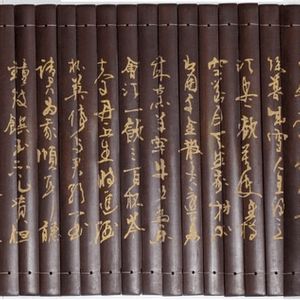 絲暮成雪人生得意
須盡歡莫使金樽
空對月天生我材必
有用千金散盡還復
來烹羊宰牛且為樂
會須一飲三百杯岑
夫子丹丘生將進酒
杯莫停與君歌一曲
請君為我傾耳聽
鐘鼓饌玉不足貴但